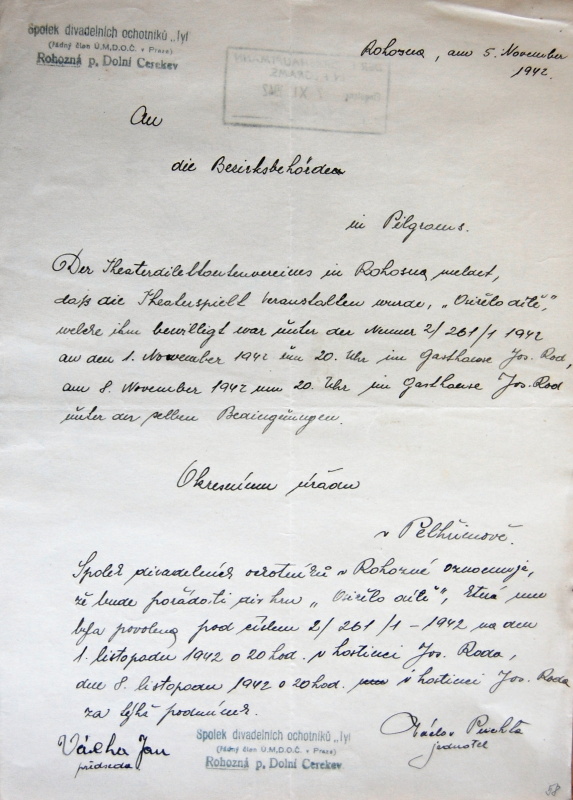 Spolek divadelních ochotníků „Tyl
(řádný člen Ú.M.D.O.Č. v Praze)
Rohozná p. Dolní Cerekev
Rohozna, am 5. November
1942.
An
die Bezirksbehörde
in Pilgrams.
Der Theaterdilettantenvereins in Rohozna meldet,
daß die Theaterspielt veranstalten wurde, „Osiřelo dítě",
welche ihm bewilligt war unter der Nummer 2/261/1 1942
an den 1. November 1942 um 20. Uhr im Gasthause Jos. Rod,
am 8. November 1942 um 20. Uhr im Gasthause Jos. Rod
unter der selben Bedingungen.
Okresnímu úřadu
v Pelhřimově.
Spolek divadelních ochotníků v Rohozné oznamuje,
že bude pořádati div. hru „Osiřelo dítě", která mu
byla povolena pod číslem 2/261/1-1942 na den
1. listopadu 1942 o 20 hod. v hostinci Jos. Roda,
dne 8. listopadu 1942 o 20 hod. v hostinci Jos. Roda
za týchž podmínek.
Vácha Jan
předseda
Spolek divadelních ochotníků „Tyl
(řádný člen Ú.M.D.O.Č. v Praze)
Rohozná p. Dolní Cerekev
Václav Puchta
jednatel
58